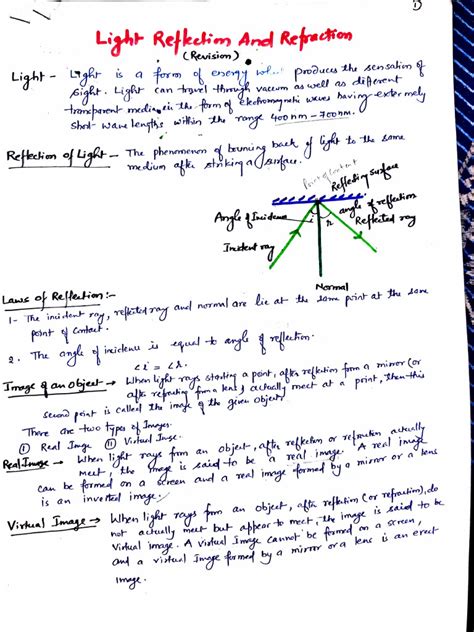 1)
Light Reflection And Refraction
(Revision)
Light - Light is a form of energy wh.. produces the sensation of
sight. Light can travel through vacuum as well as different
transparent media in the form of electromagnetic waves having extermely
short-wavelengths within the range 400nm - 700nm.
Reflection of Light - The phenomenon of bouncing back of light to the same
medium after striking a surface.
Point of Contact
Reflecting surface
Angle of Incidence
i
r
angle of reflection
Reflected ray
Incident ray
Normal
Laws of Reflection:-
1- The incident ray, reflected ray and normal are lie at the same point at the same
point of contact.
2. The angle of incidence is equal to angle of reflection.
∠i = ∠r.
Image of an object → When light rays starting a point, after reflection from a mirror (or
after refracting from a lens) actually meet at a point, then this
second point is called the image of the given object.
There are two types of Images.
(I) Real Image (II) Virtual Image.
Real Image → When light rays from an object, after reflection or refraction actually
meet, the image is said to be a real image. A real image
can be formed on a screen and a real image formed by a mirror or a lens
is an inverted image.
Virtual Image → When light rays from an object, after reflection (or refraction), do
not actually meet but appear to meet, the image is said to be
virtual image. A virtual Image cannot be formed on a screen,
and a virtual Image formed by a mirror or a lens is an erect
image.